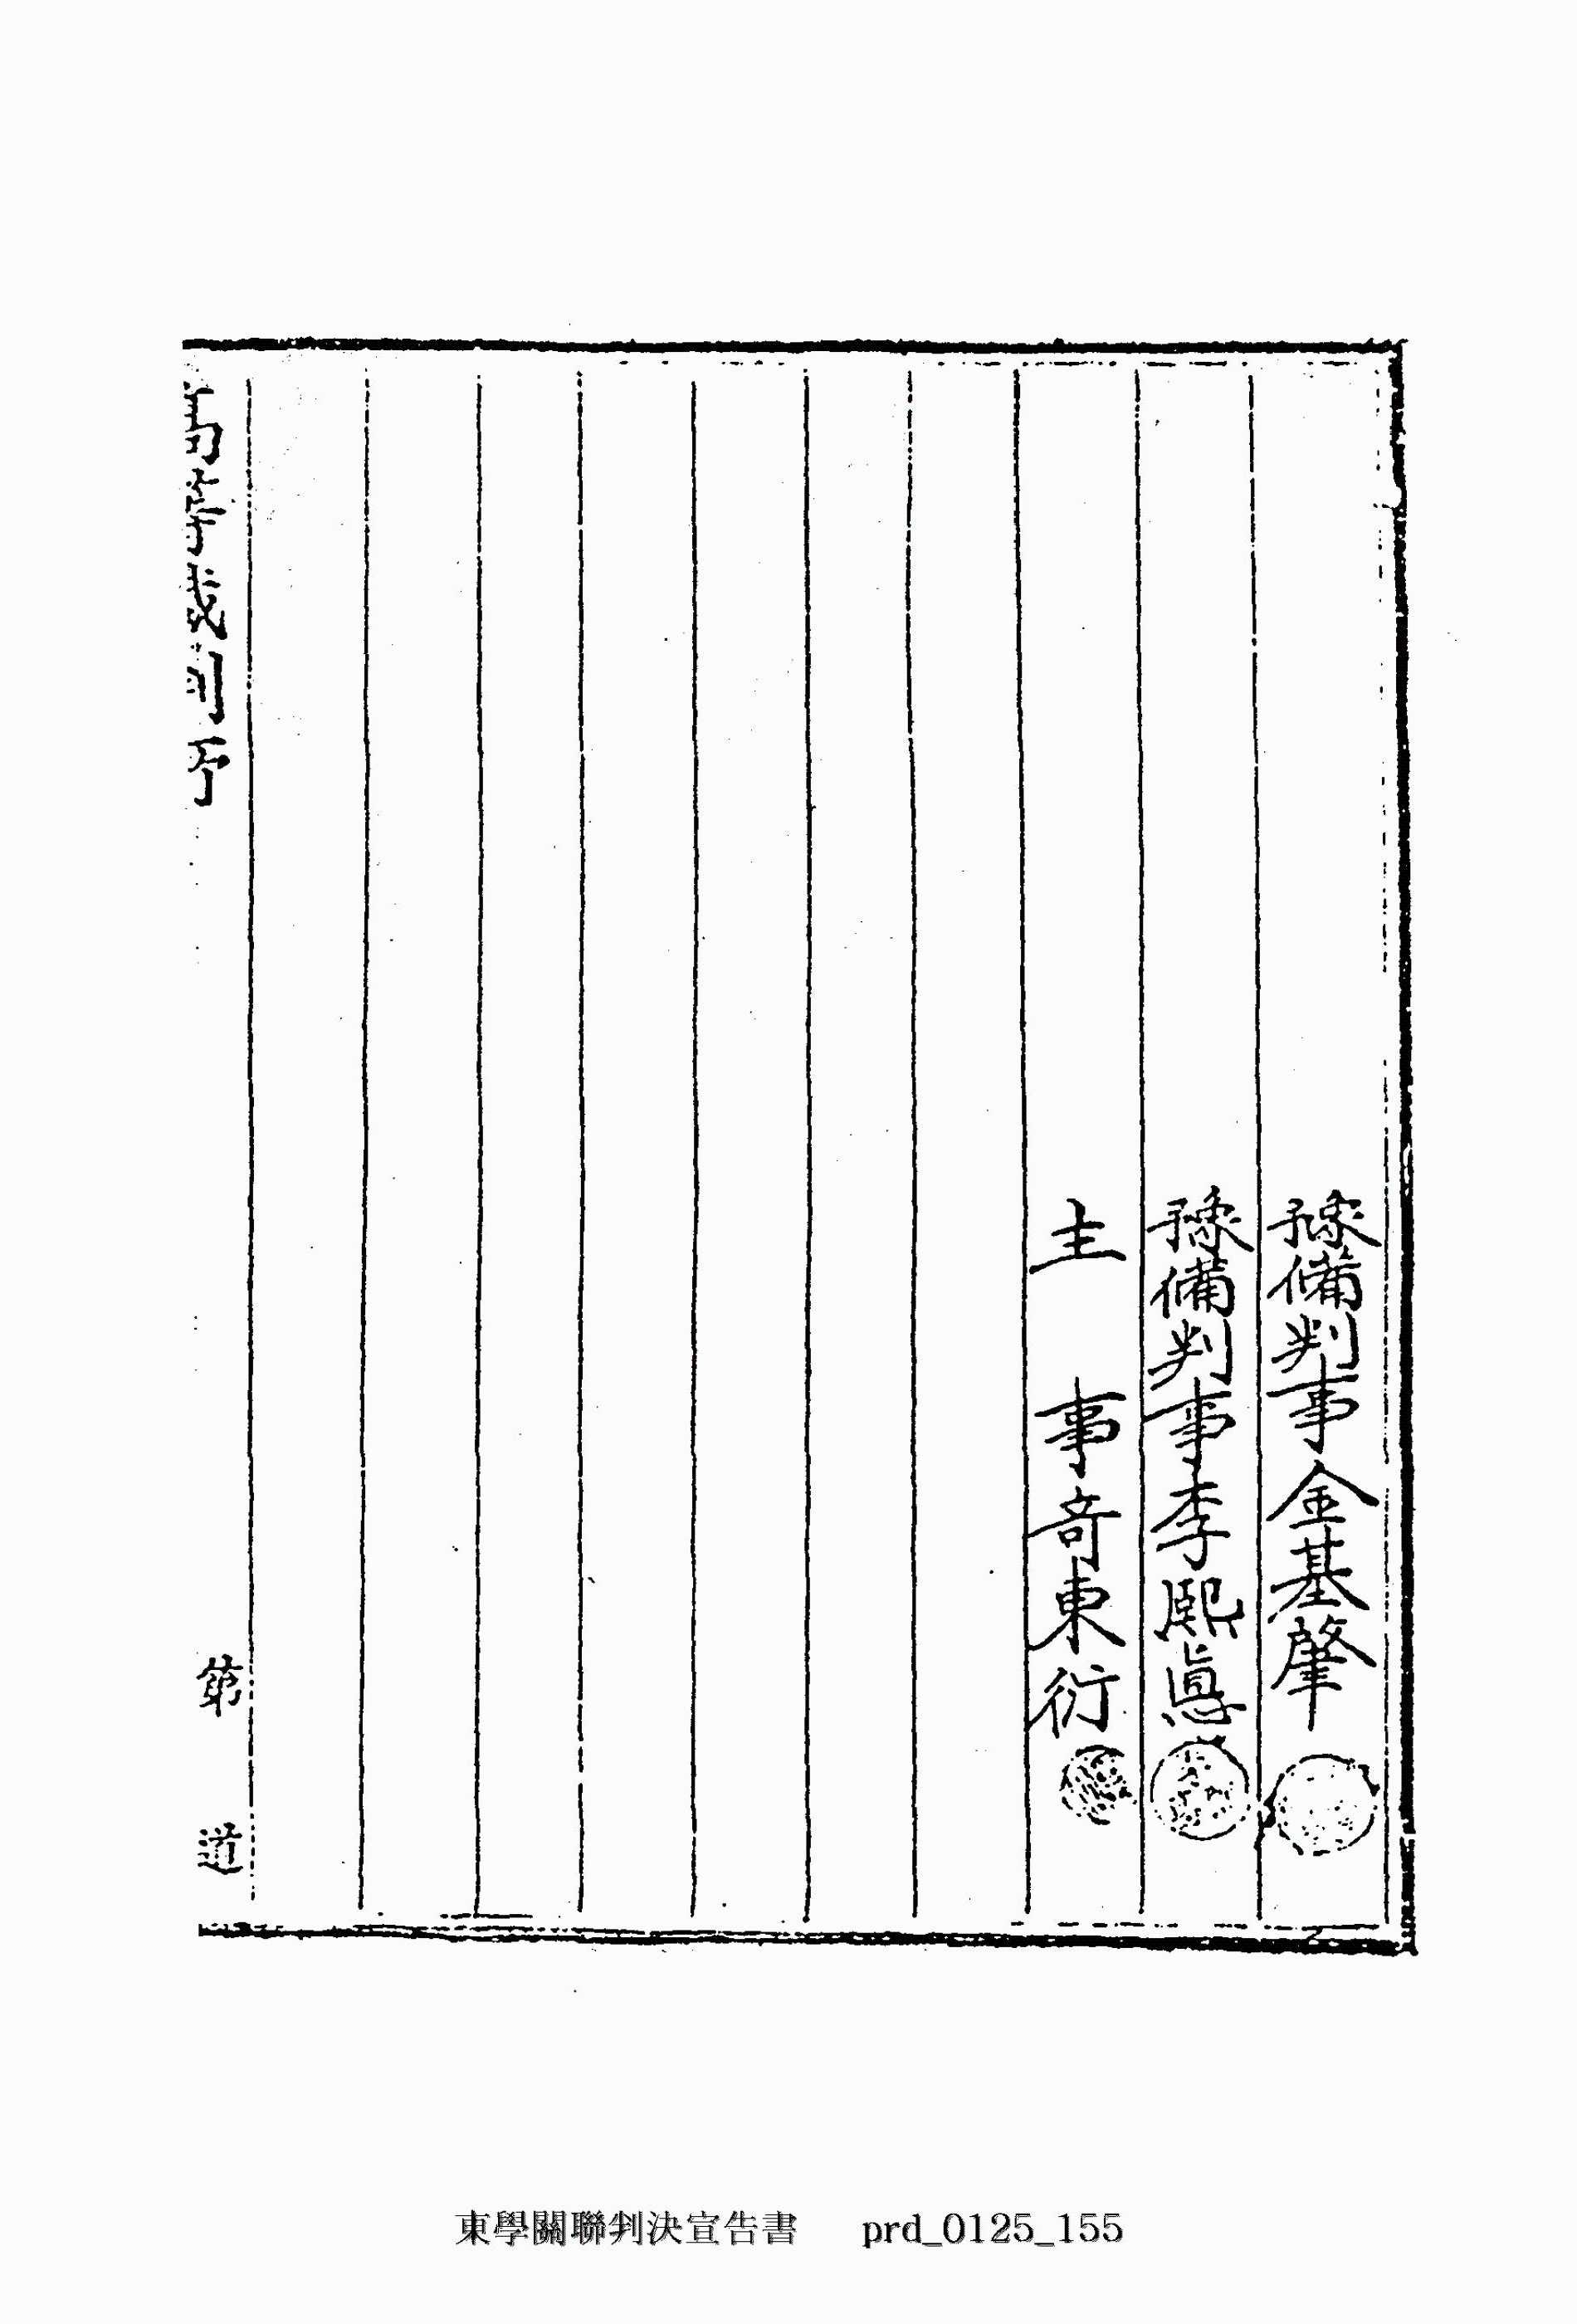 豫備判事金基肇
豫備判事李熙悳
主 事奇東衍
第 道
東學關聯判決宣告書 prd_0125_155